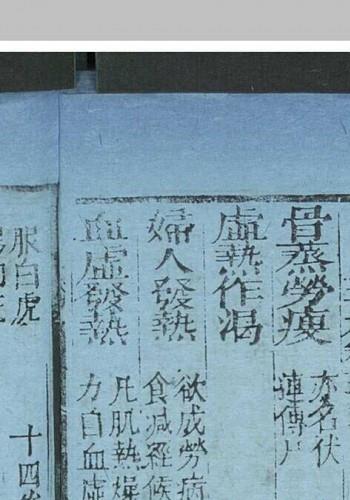 骨蒸勞瘦
亦名伏
連傳尸
虛熱作渴
婦人發熱
欲成勞病
食減經候
血虛發熱
凡肌熱燥
力自血虛
服白虎
十四